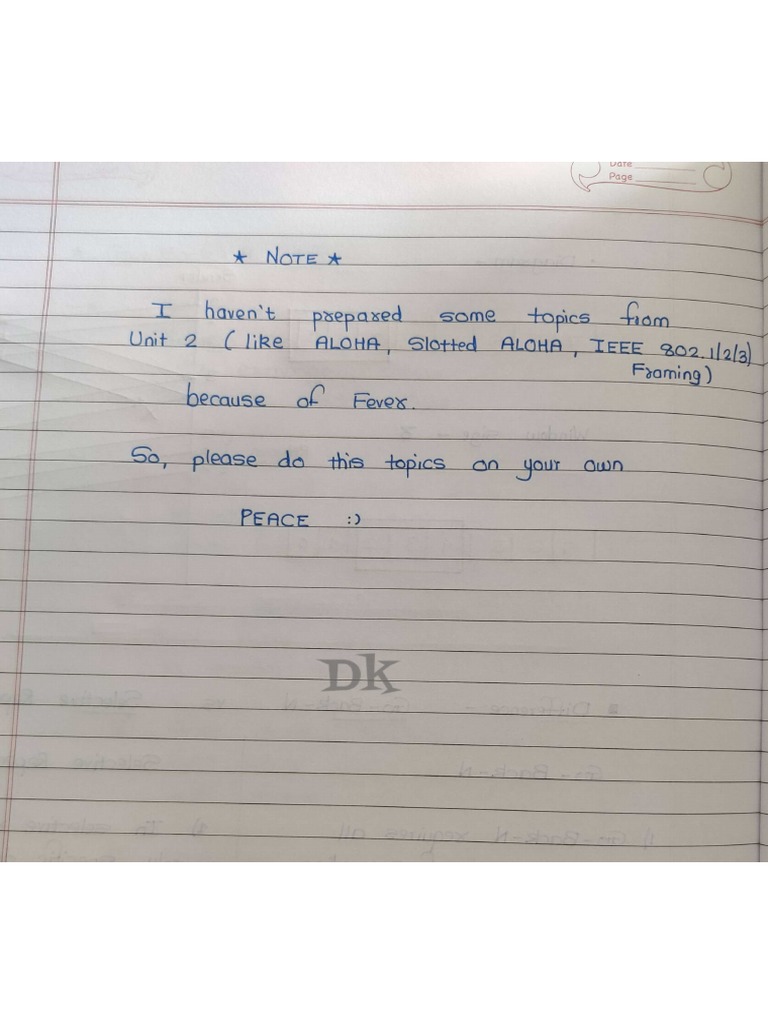 Date
Page
★ NOTE ★
I haven't prepared some topics from
Unit 2 (like ALOHA, Slotted ALOHA, IEEE 802.1/2/3)
Framing)
because of Fever.
So, please do this topics on your own
PEACE :)
DK